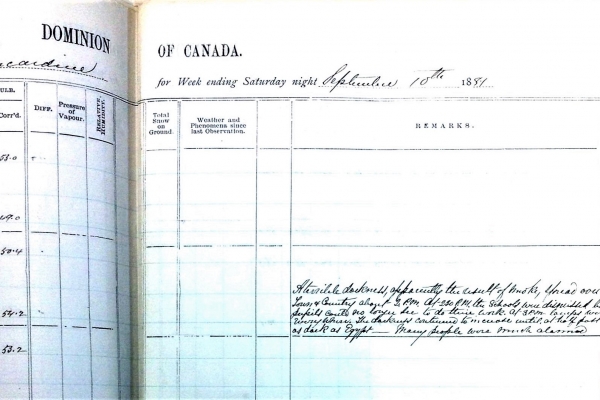 DOMINION OF CANADA.
cardine
for Week ending Saturday night September 10th 1881
ULB.
Corr'd.
DIFF.
Pressure of Vapour.
RELATIVE HUMIDITY.
Total Snow on Ground.
Weather and Phenomena since last Observation.
REMARKS.
53.0
49.0
50.4
54.2
53.2
A terrible darkness, apparently the result of smoke, spread over
Town & Country about 2 P.M. At 2.30 P.M. the Schools were dismissed
pupils could no longer see to do their work. At 3 P.M. lamps
The darkness continued to increase until, at half past
as dark as Egypt — Many people were much alarmed